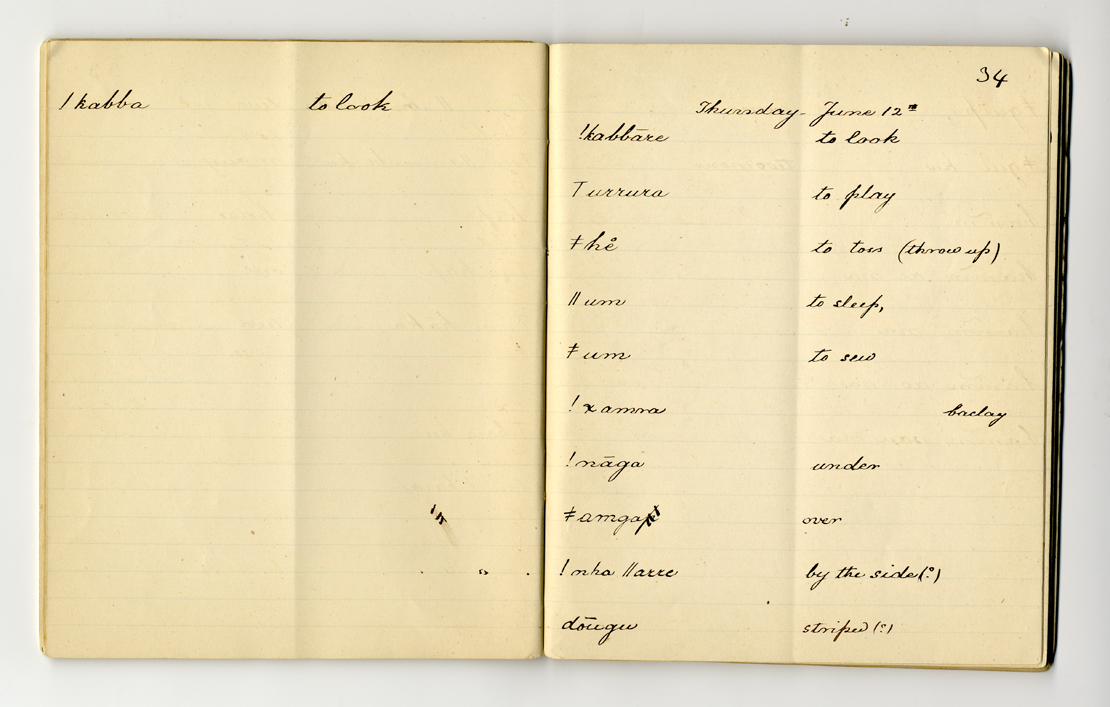 ! kabba to look
34
Thursday - June 12th
!kabbāre to look
Turrura to play
ǂhè̊ to toss (throw up)
ǁum to sleep,
ǂum to sew
! x amra
! nāga under
ǂamga over
! nha ǁarre by the side (?)
dōugu striped (?)